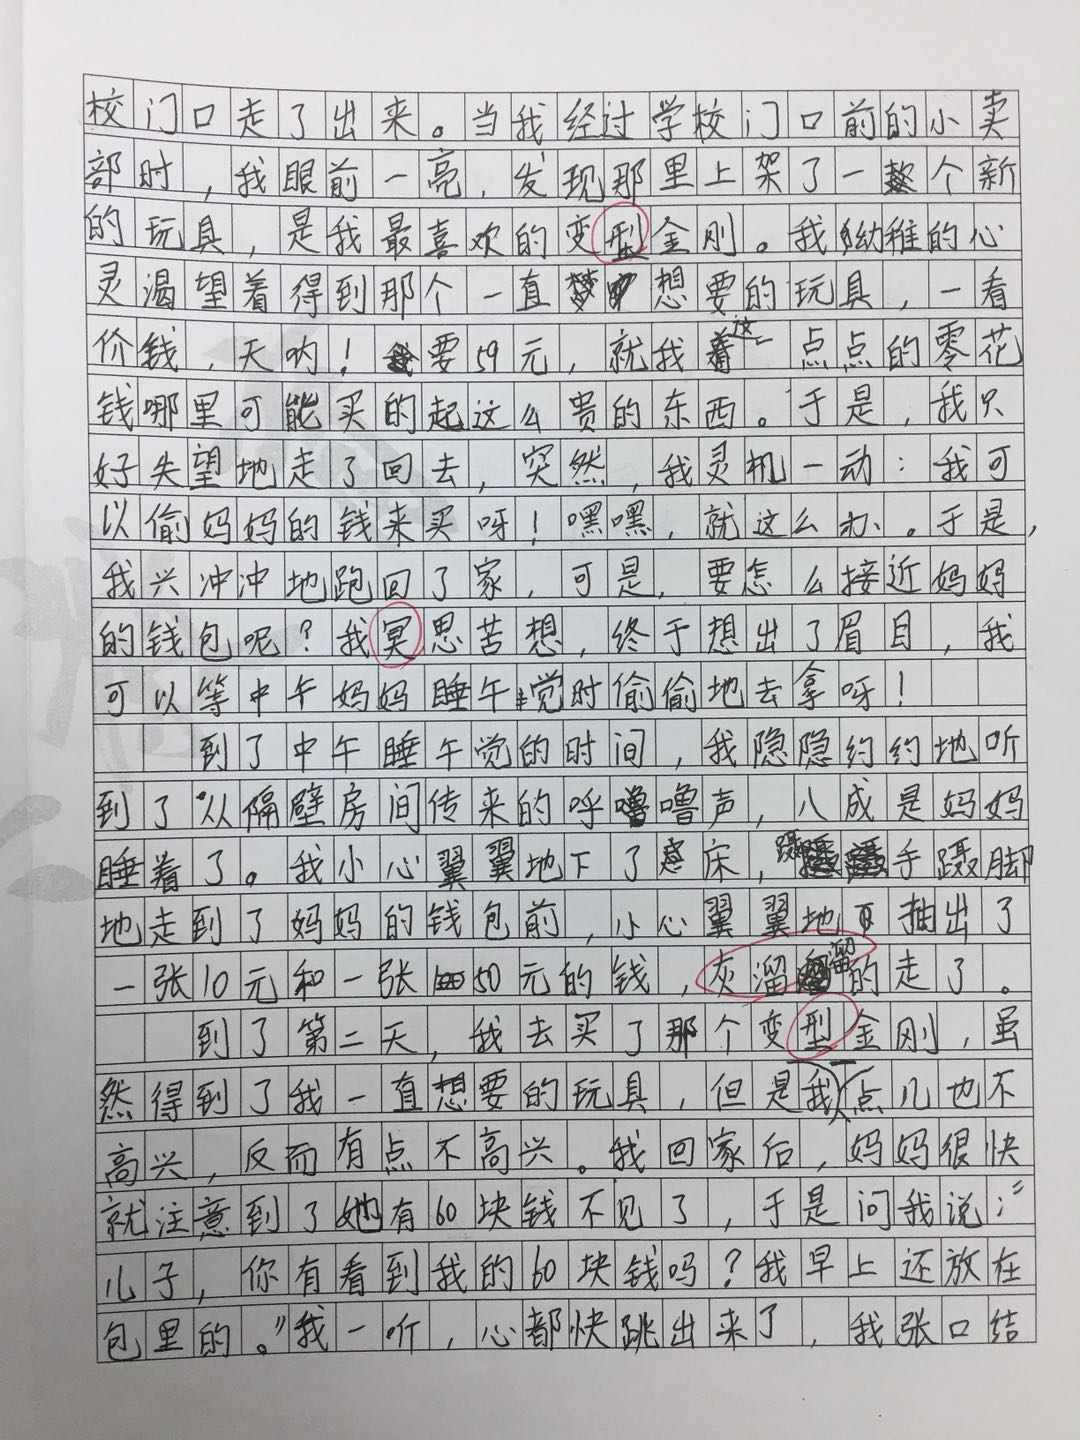 校门口走了出来。当我经过学校门口前的小卖
部时，我眼前一亮，发现那里上架了一个新
的玩具，是我最喜欢的变型金刚。我幼稚的心
灵渴望着得到那个一直梦中想要的玩具，一看
价钱，天呐！要59元，就我这一点点的零花
钱哪里可能买的起这么贵的东西。于是，我只
好失望地走了回去，突然，我灵机一动：我可
以偷妈妈的钱来买呀！嘿嘿，就这么办。于是，
我兴冲冲地跑回了家，可是，要怎么接近妈妈
的钱包呢？我冥思苦想，终于想出了眉目，我
可以等中午妈妈睡午觉时偷偷地去拿呀！
到了中午睡午觉的时间，我隐隐约约地听
到了从隔壁房间传来的呼噜声，八成是妈妈
睡着了。我小心翼翼地下了床，蹑手蹑脚
地走到了妈妈的钱包前，小心翼翼地抽出了
一张10元和一张50元的钱，灰溜溜的走了。
到了第二天，我去买了那个变型金刚，虽
然得到了我一直想要的玩具，但是我一点儿也不
高兴，反而有点不高兴。我回家后，妈妈很快
就注意到了她有60块钱不见了，于是问我说：“
儿子，你有看到我的60块钱吗？我早上还放在
包里的。”我一听，心都快跳出来了，我张口结